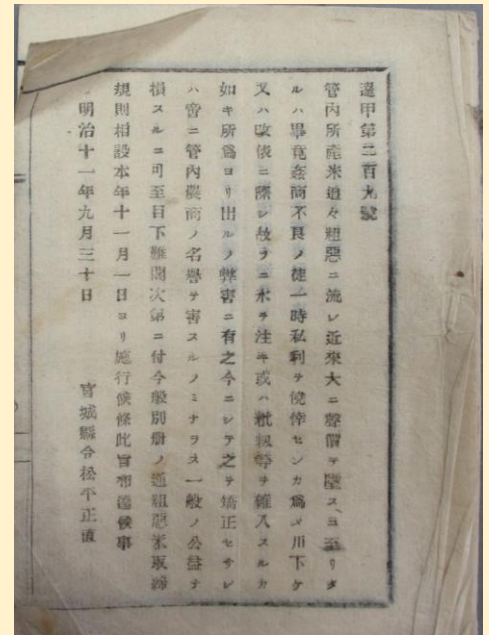 達甲第二百九號
管内所產米追々粗惡ニ流レ近來大ニ聲價ヲ墜スニ至リタ
ルハ畢竟姦商不良ノ徒一時私利ヲ僥倖センカ爲メ川下ケ
又ハ改俵ニ際シ故ラニ水ヲ注キ或ハ粃籾等ヲ雜入スルカ
如キ所爲ヨリ出ルノ弊害ニ有之今ニシテ之ヲ矯正セサレ
ハ啻ニ管内農商ノ名譽ヲ害スルノミナラス一般ノ公益ヲ
損スルニ可至目下難閣次第ニ付今般別冊ノ通粗惡米取締
規則相設本年十一月一日ヨリ施行候條此旨相達候事
明治十一年九月三十日
宮城縣令松平正直